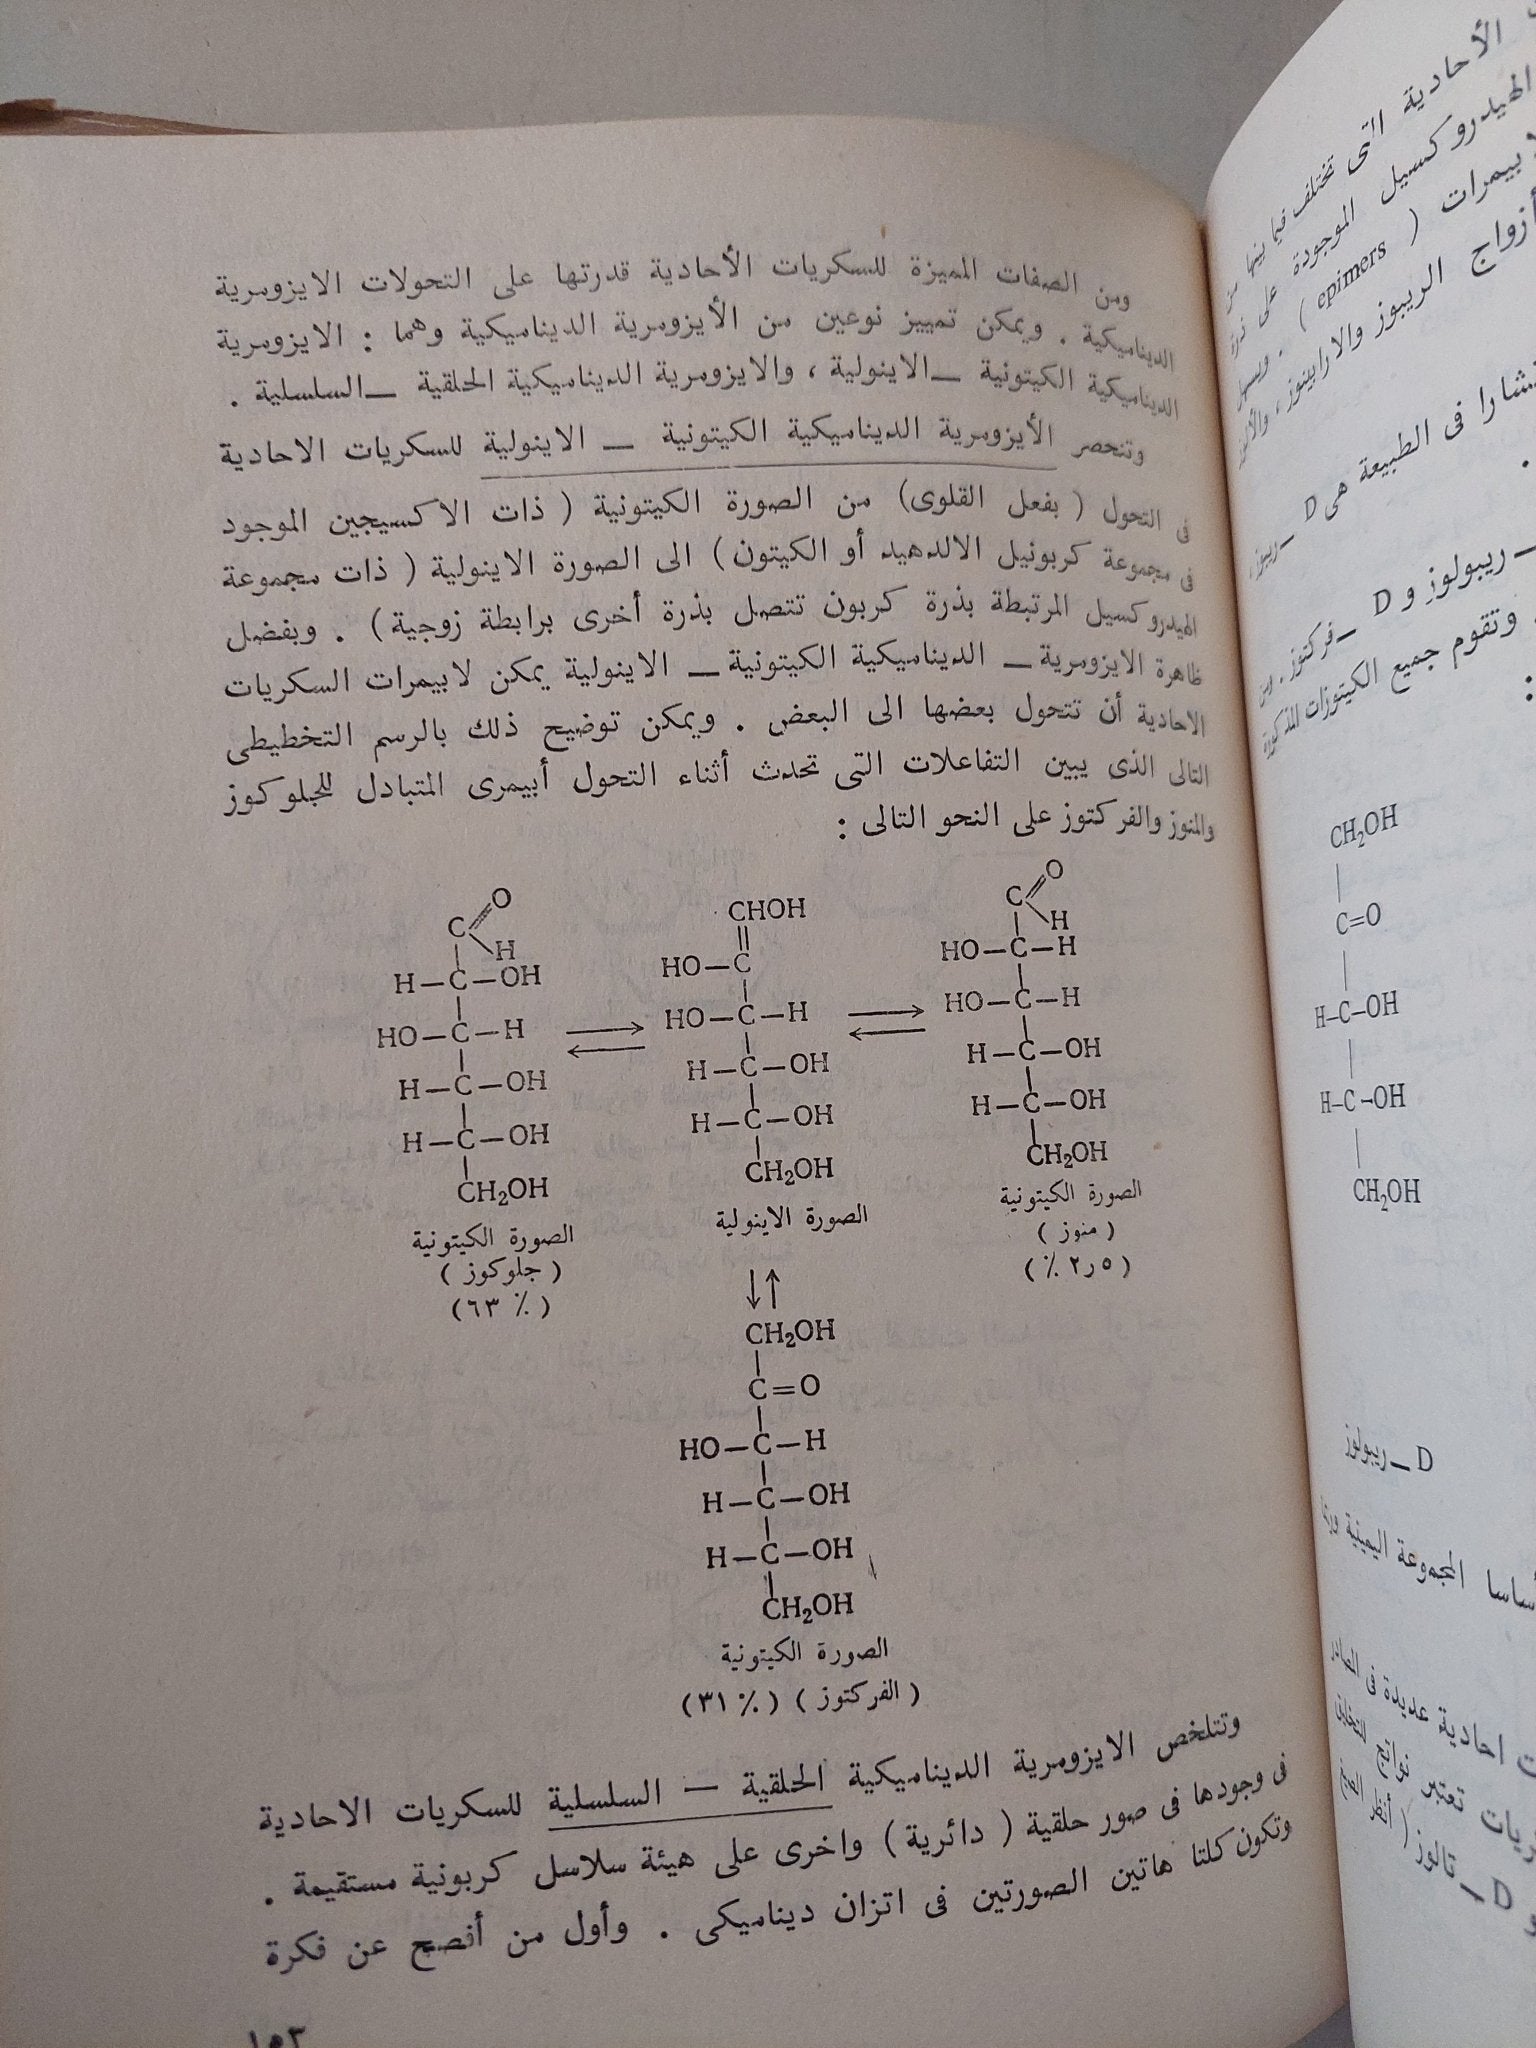 ومن الصفات المميزة للسكريات الأحادية قدرتها على التحولات الايزومرية
الديناميكية . ويمكن تمييز نوعين من الأيزومرية الديناميكية وهما : الايزومرية
الديناميكية الكيتونية — الاينولية ، والايزومرية الديناميكية الحلقية — السلسلية .
وتنحصر الأيزومرية الديناميكية الكيتونية — الاينولية للسكريات الاحادية
فى التحول ( بفعل القلوى ) من الصورة الكيتونية ( ذات الاكسيجين الموجود
فى مجموعة كربونيل الالدهيد أو الكيتون ) الى الصورة الاينولية ( ذات مجموعة
الهيدروكسيل المرتبطة بذرة كربون تتصل بذرة أخرى برابطة زوجية ) . وبفضل
ظاهرة الايزومرية — الديناميكية الكيتونية — الاينولية يمكن لابيمرات السكريات
الاحادية أن تتحول بعضها الى البعض . ويمكن توضيح ذلك بالرسم التخطيطى
التالى الذى يبين التفاعلات التى تحدث أثناء التحول أبيمرى المتبادل للجلوكوز
والمنوز والفركتوز على النحو التالى :
C O
H
H—C—OH
HO—C—H
H—C—OH
H—C—OH
CH2OH
الصورة الكيتونية
( جلوكوز )
( ٦٣ ٪ )
CHOH
HO—C
HO—C—H
H—C—OH
H—C—OH
CH2OH
الصورة الاينولية
C O
H
HO—C—H
HO—C—H
H—C—OH
H—C—OH
CH2OH
الصورة الكيتونية
( منوز )
( ٥ر٢ ٪ )
CH2OH
C=O
HO—C—H
H—C—OH
H—C—OH
CH2OH
الصورة الكيتونية
( الفركتوز ) ( ٣١ ٪ )
وتتلخص الايزومرية الديناميكية الحلقية — السلسلية للسكريات الاحادية
فى وجودها فى صور حلقية ( دائرية ) واخرى على هيئة سلاسل كربونية مستقيمة .
وتكون كلتا هاتين الصورتين فى اتزان ديناميكى . وأول من أفصح عن فكرة
١٥٣
الأحادية التى تختلف فيما بينها من
الهيدروكسيل الموجودة على ذرة
( epimers ) .
أزواج الريبوز والارابينوز ،
فى الطبيعة هى D — ريبوز ،
— ريبولوز و D — فركتوز . ومن
وتقوم جميع الكيتوزات المذكورة
:
CH2OH
C=O
H—C—OH
H—C—OH
CH2OH
D — ريبولوز
المجموعة اليمينية
احادية عديدة فى
تعتبر
D — تالوز (